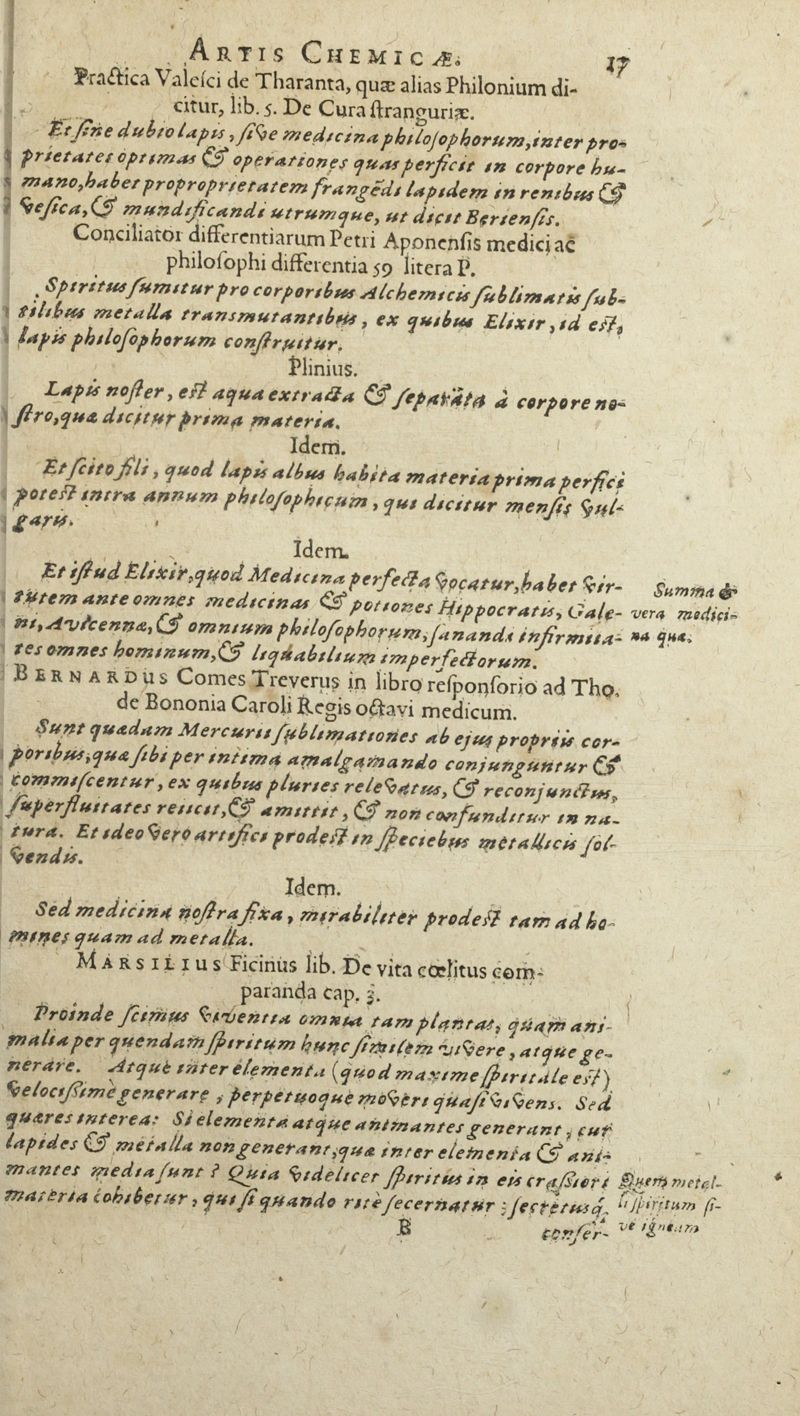 ARTIS CHEMICÆ. 17
Practica Valesci de Tharanta, quæ alias Philonium di-
citur, lib. 5. De Cura stranguriæ.
Et sine dubio lapis, sive medicina philosophorum, inter pro-
prietates optimas & operationes quas perficit in corpore hu-
mano, habet proproprietatem frangēdi lapidem in renibus &
vesica, & mundificandi utrumque, ut dicit Bertensis.
Conciliator differentiarum Petri Aponensis medici ac
philosophi differentia 59 litera P.
Spiritus sumitur pro corporibus Alchemicis sublimatis sub-
tilibus metalla transmutantibus, ex quibus Elixir, id est,
lapis philosophorum construitur.
Plinius.
Lapis noster, est aqua extracta & separata à corpore no-
stro, quæ dicitur prima materia.
Idem.
Et scito fili, quod lapis albus habita materia prima perfici
potest intra annum philosophicum, qui dicitur mensis vul-
garis.
Idem.
Et istud Elixir, quod Medicina perfecta vocatur, habet vir-
tutem ante omnes medicinas & potiones Hippocratis, Gale-
ni, Avicenna, & omnium philosophorum, sanandi infirmita-
tes omnes hominum, & liquabilium imperfectorum.
Summa &
vera medici-
na quæ.
BERNARDUS Comes Treverus in libro responsorio ad Tho.
de Bononia Caroli Regis octavi medicum.
Sunt quædam Mercurii sublimationes ab ejus propriis cor-
poribus, quæ sibi per intima amalgamando conjunguntur &
commiscentur, ex quibus pluries relevatus, & reconjunctus,
superfluitates reiicit, & amittit, & non confunditur in na-
tura. Et ideo vero artifici prodest in speciebus metallicis sol-
vendis.
Idem.
Sed medicina nostra fixa, mirabiliter prodest tam ad ho-
mines quam ad metalla.
MARSILIUS Ficinus lib. De vita cœlitus com-
paranda cap. 3.
Proinde scimus viventia omnia tam plantas, quam ani-
malia per quendam spiritum hunc similem vivere, atque ge-
nerare. Atque inter elementa (quod maxime spiritale est)
velocissime generare, perpetuoque moveri quasi vivens. Sed
quæres interea: Si elementa atque animantes generant, cur
lapides & metalla non generant, quæ inter elementa & ani-
mantes media sunt? Quia videlicet spiritus in eis crassiori
materia cohibetur, qui si quando rite secernatur; secretusq́,
Quem metal-
li spiritum si-
ve igneum
B conser-